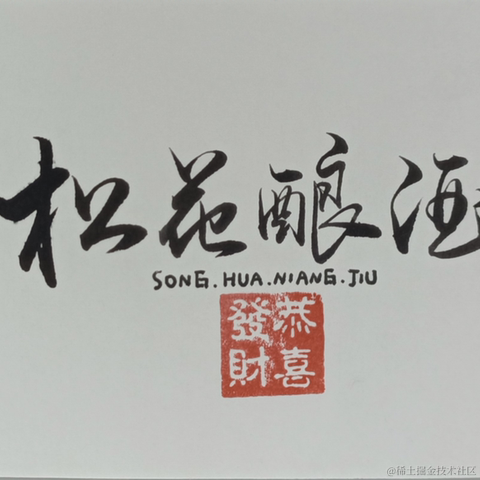 松花酿酒
SONG.HUA.NIANG.JIU
恭喜
發財
@稀土掘金技术社区